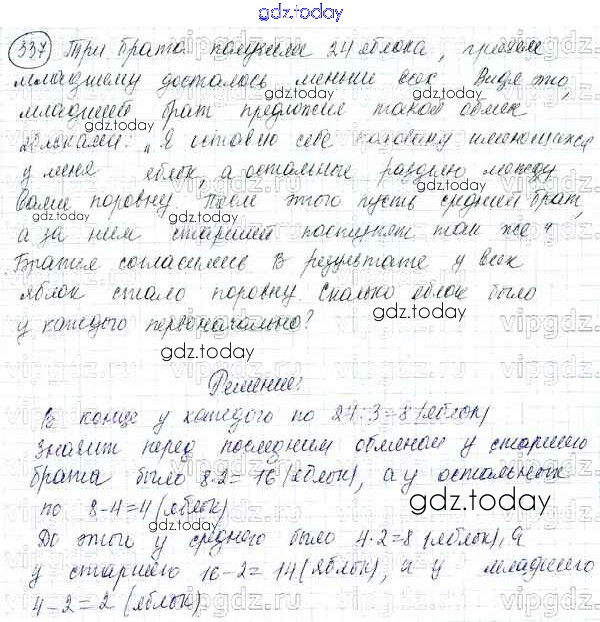 gdz.today
337 Три брата получили 24 яблока, причём
младшему досталось меньше всех Видя это,
младший брат предложил такой обмен
яблоками: „Я оставлю себе половину имеющихся
у меня яблок, а остальные разделю между
вами поровну. После этого пусть средний брат,
а за ним старший поступят так же"
Братья согласились В результате у всех
яблок стало поровну. Сколько яблок было
у каждого первоначально?
gdz.today
Решение:
В конце у каждого по 24:3=8 (яблок)
Значит перед последним обменом у старшего
брата было 8·2=16 (яблок), а у остальных
по 8-4=4 (яблок)
До этого у среднего было 4·2=8 (яблок), а
у старшего 16-2=14 (яблок), а у младшего
4-2=2 (яблок)